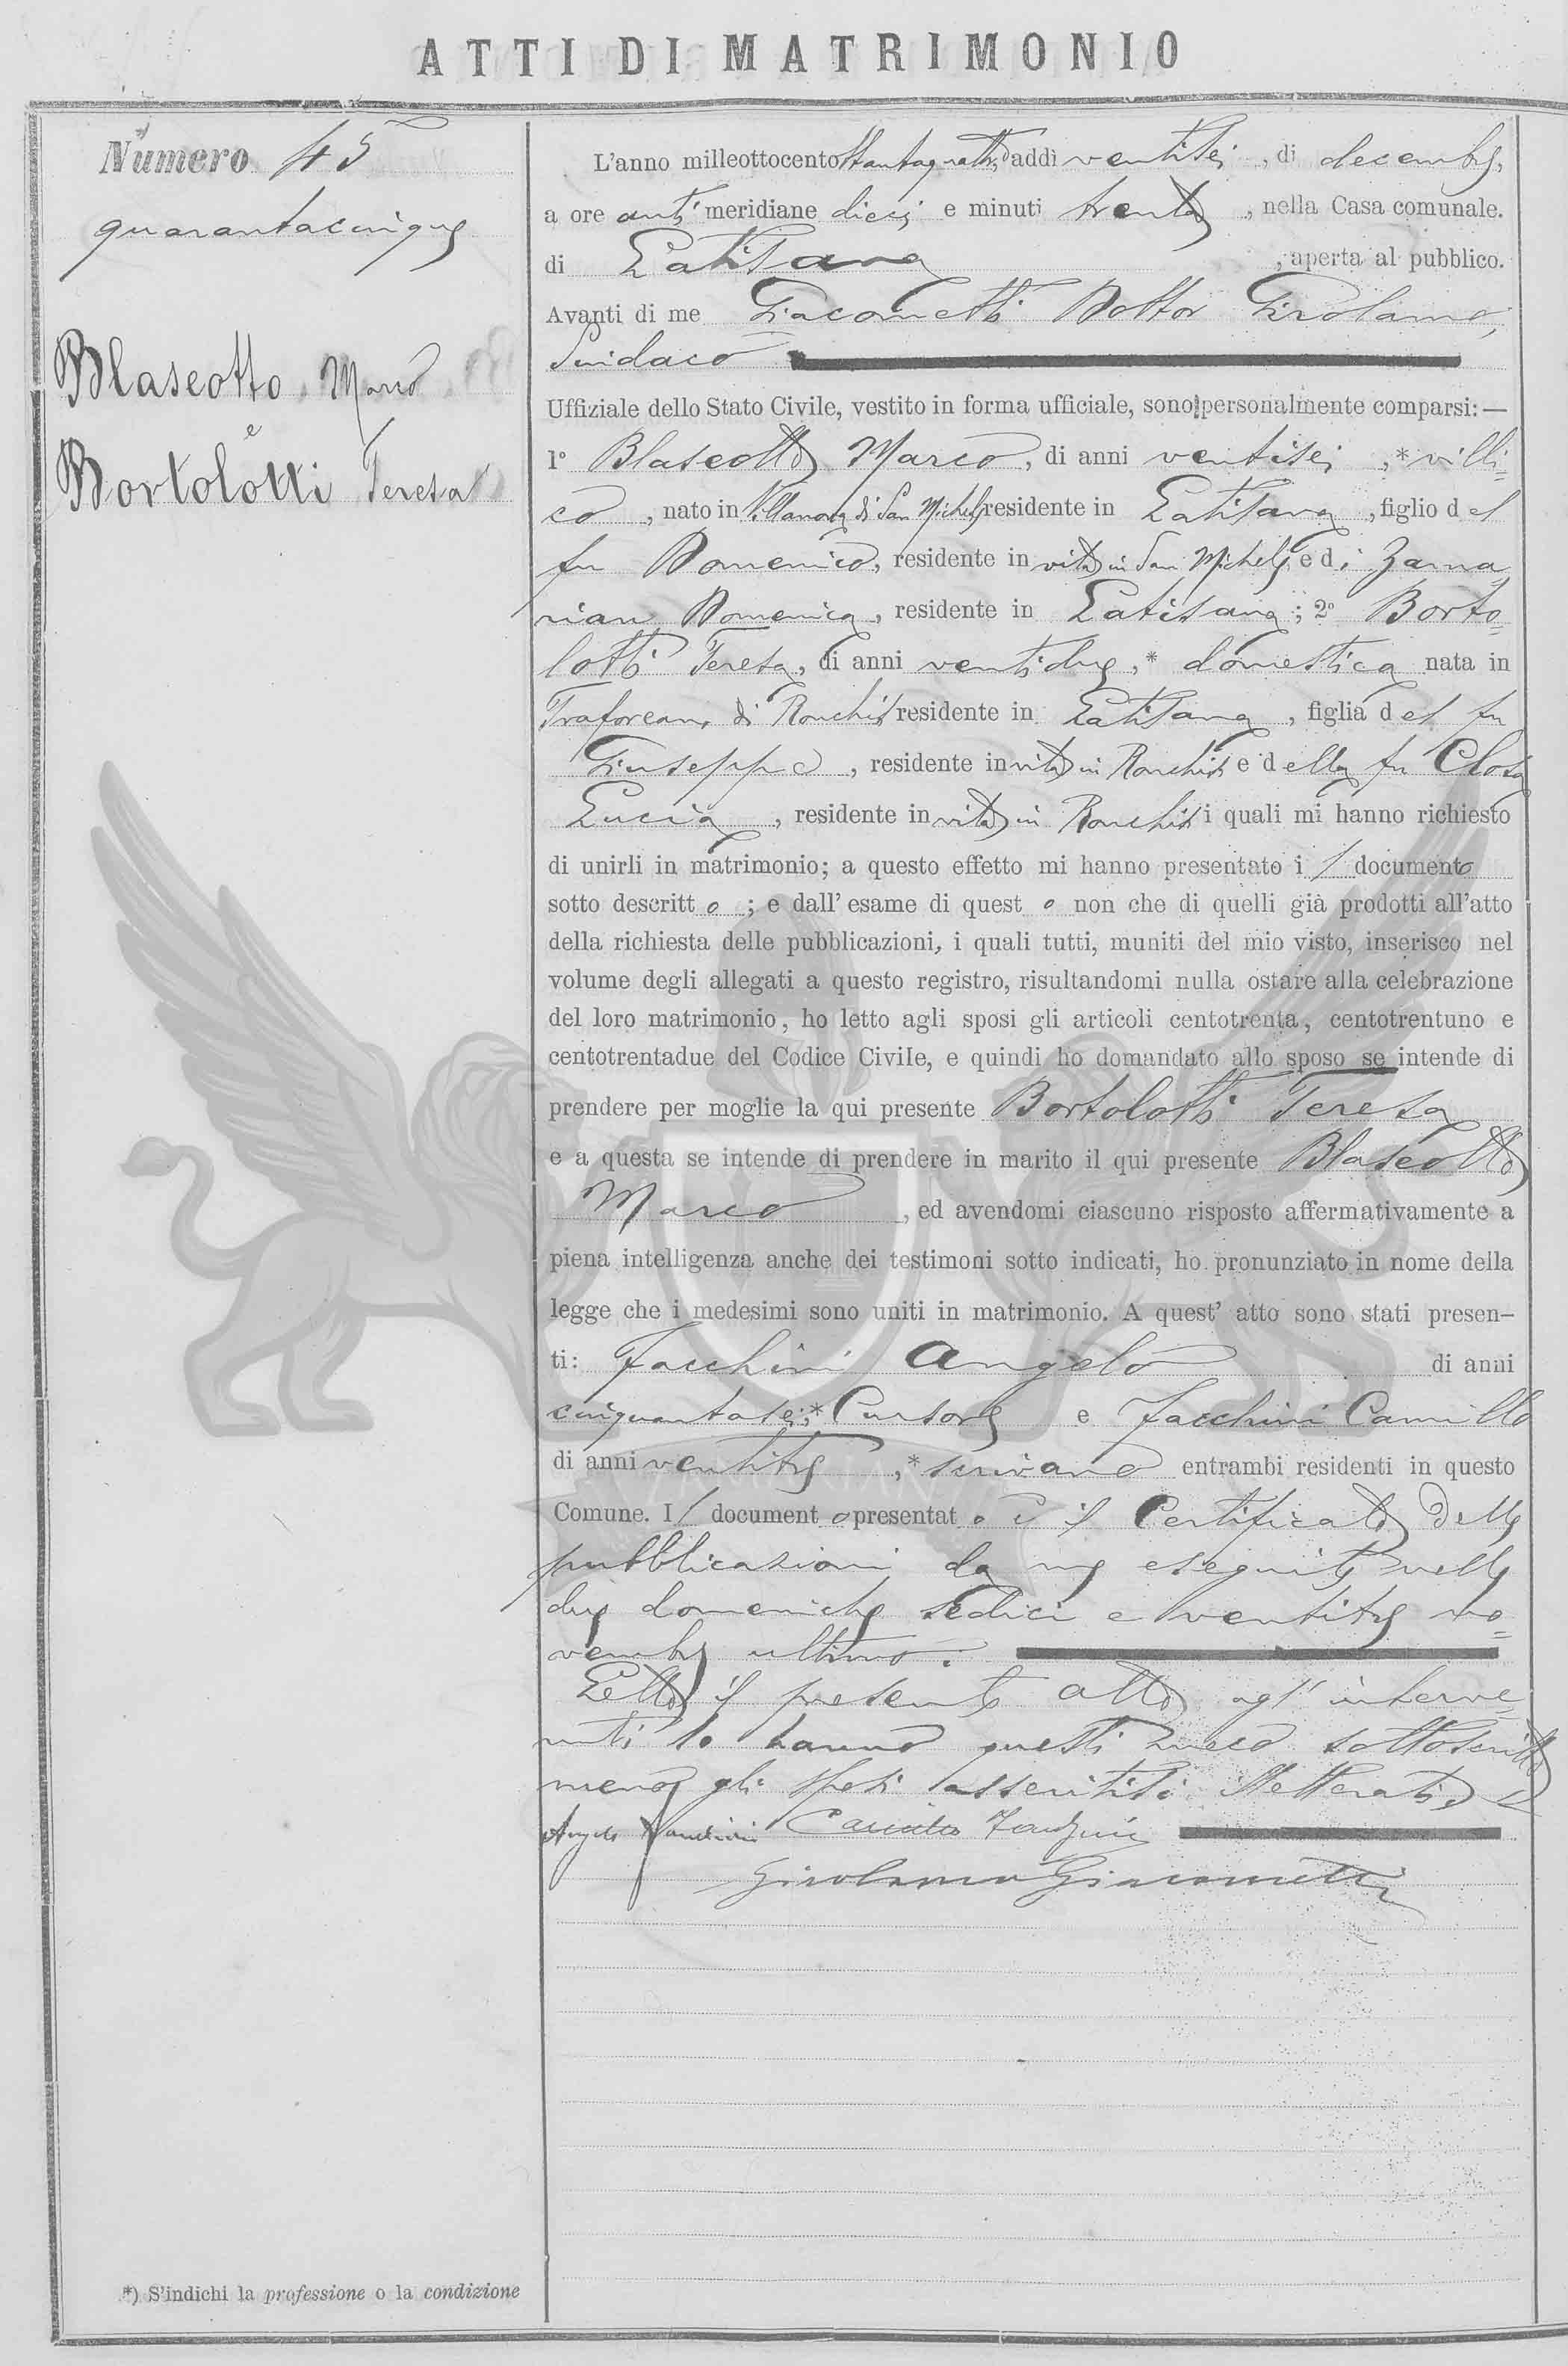 ATTI DI MATRIMONIO
Numero 45
quarantacinque
Blaseotto Marco
e
Bortolotti Teresa
L'anno milleottocentottantaquattro, addì ventisei, di decembre,
a ore anti meridiane dieci e minuti trenta, nella Casa comunale.
di Latisana, aperta al pubblico.
Avanti di me Giacometti Dottor Girolamo,
Sindaco
Uffiziale dello Stato Civile, vestito in forma ufficiale, sono personalmente comparsi:—
1° Blaseotto Marco, di anni ventisei, * villi=
co, nato in Villanova di San Michele residente in Latisana, figlio del
fu Domenico, residente in vita in San Michele e di
Domenica, residente in Latisana; 2° Borto=
lotti Teresa, di anni ventidue, * domestica nata in
Fraforeano di Ronchis residente in Latisana, figlia del fu
Giuseppe, residente in vita in Ronchis e della fu Closa
Lucia, residente in vita in Ronchis i quali mi hanno richiesto
di unirli in matrimonio; a questo effetto mi hanno presentato il documento
sotto descritto; e dall'esame di questo non che di quelli già prodotti all'atto
della richiesta delle pubblicazioni, i quali tutti, muniti del mio visto, inserisco nel
volume degli allegati a questo registro, risultandomi nulla ostare alla celebrazione
del loro matrimonio, ho letto agli sposi gli articoli centotrenta, centotrentuno e
centotrentadue del Codice Civile, e quindi ho domandato allo sposo se intende di
prendere per moglie la qui presente Bortolotti Teresa
e a questa se intende di prendere in marito il qui presente Blaseotto
Marco, ed avendomi ciascuno risposto affermativamente a
piena intelligenza anche dei testimoni sotto indicati, ho pronunziato in nome della
legge che i medesimi sono uniti in matrimonio. A quest' atto sono stati presen-
ti: Facchini Angelo di anni
cinquantasei, * Cursore e Facchini Camillo
di anni ventitre, * scrivano entrambi residenti in questo
Comune. Il documento presentato è il Certificato delle
pubblicazioni da me eseguite nelle
due domeniche sedici e ventitre no=
vembre ultimo.
Letto il presente atto agl' interve=
nuti lo hanno questi meco sottoscritto
meno gli sposi asseritisi illetterati.
Angelo Facchini Camillo Facchini
Girolamo Giacometti
*) S'indichi la professione o la condizione